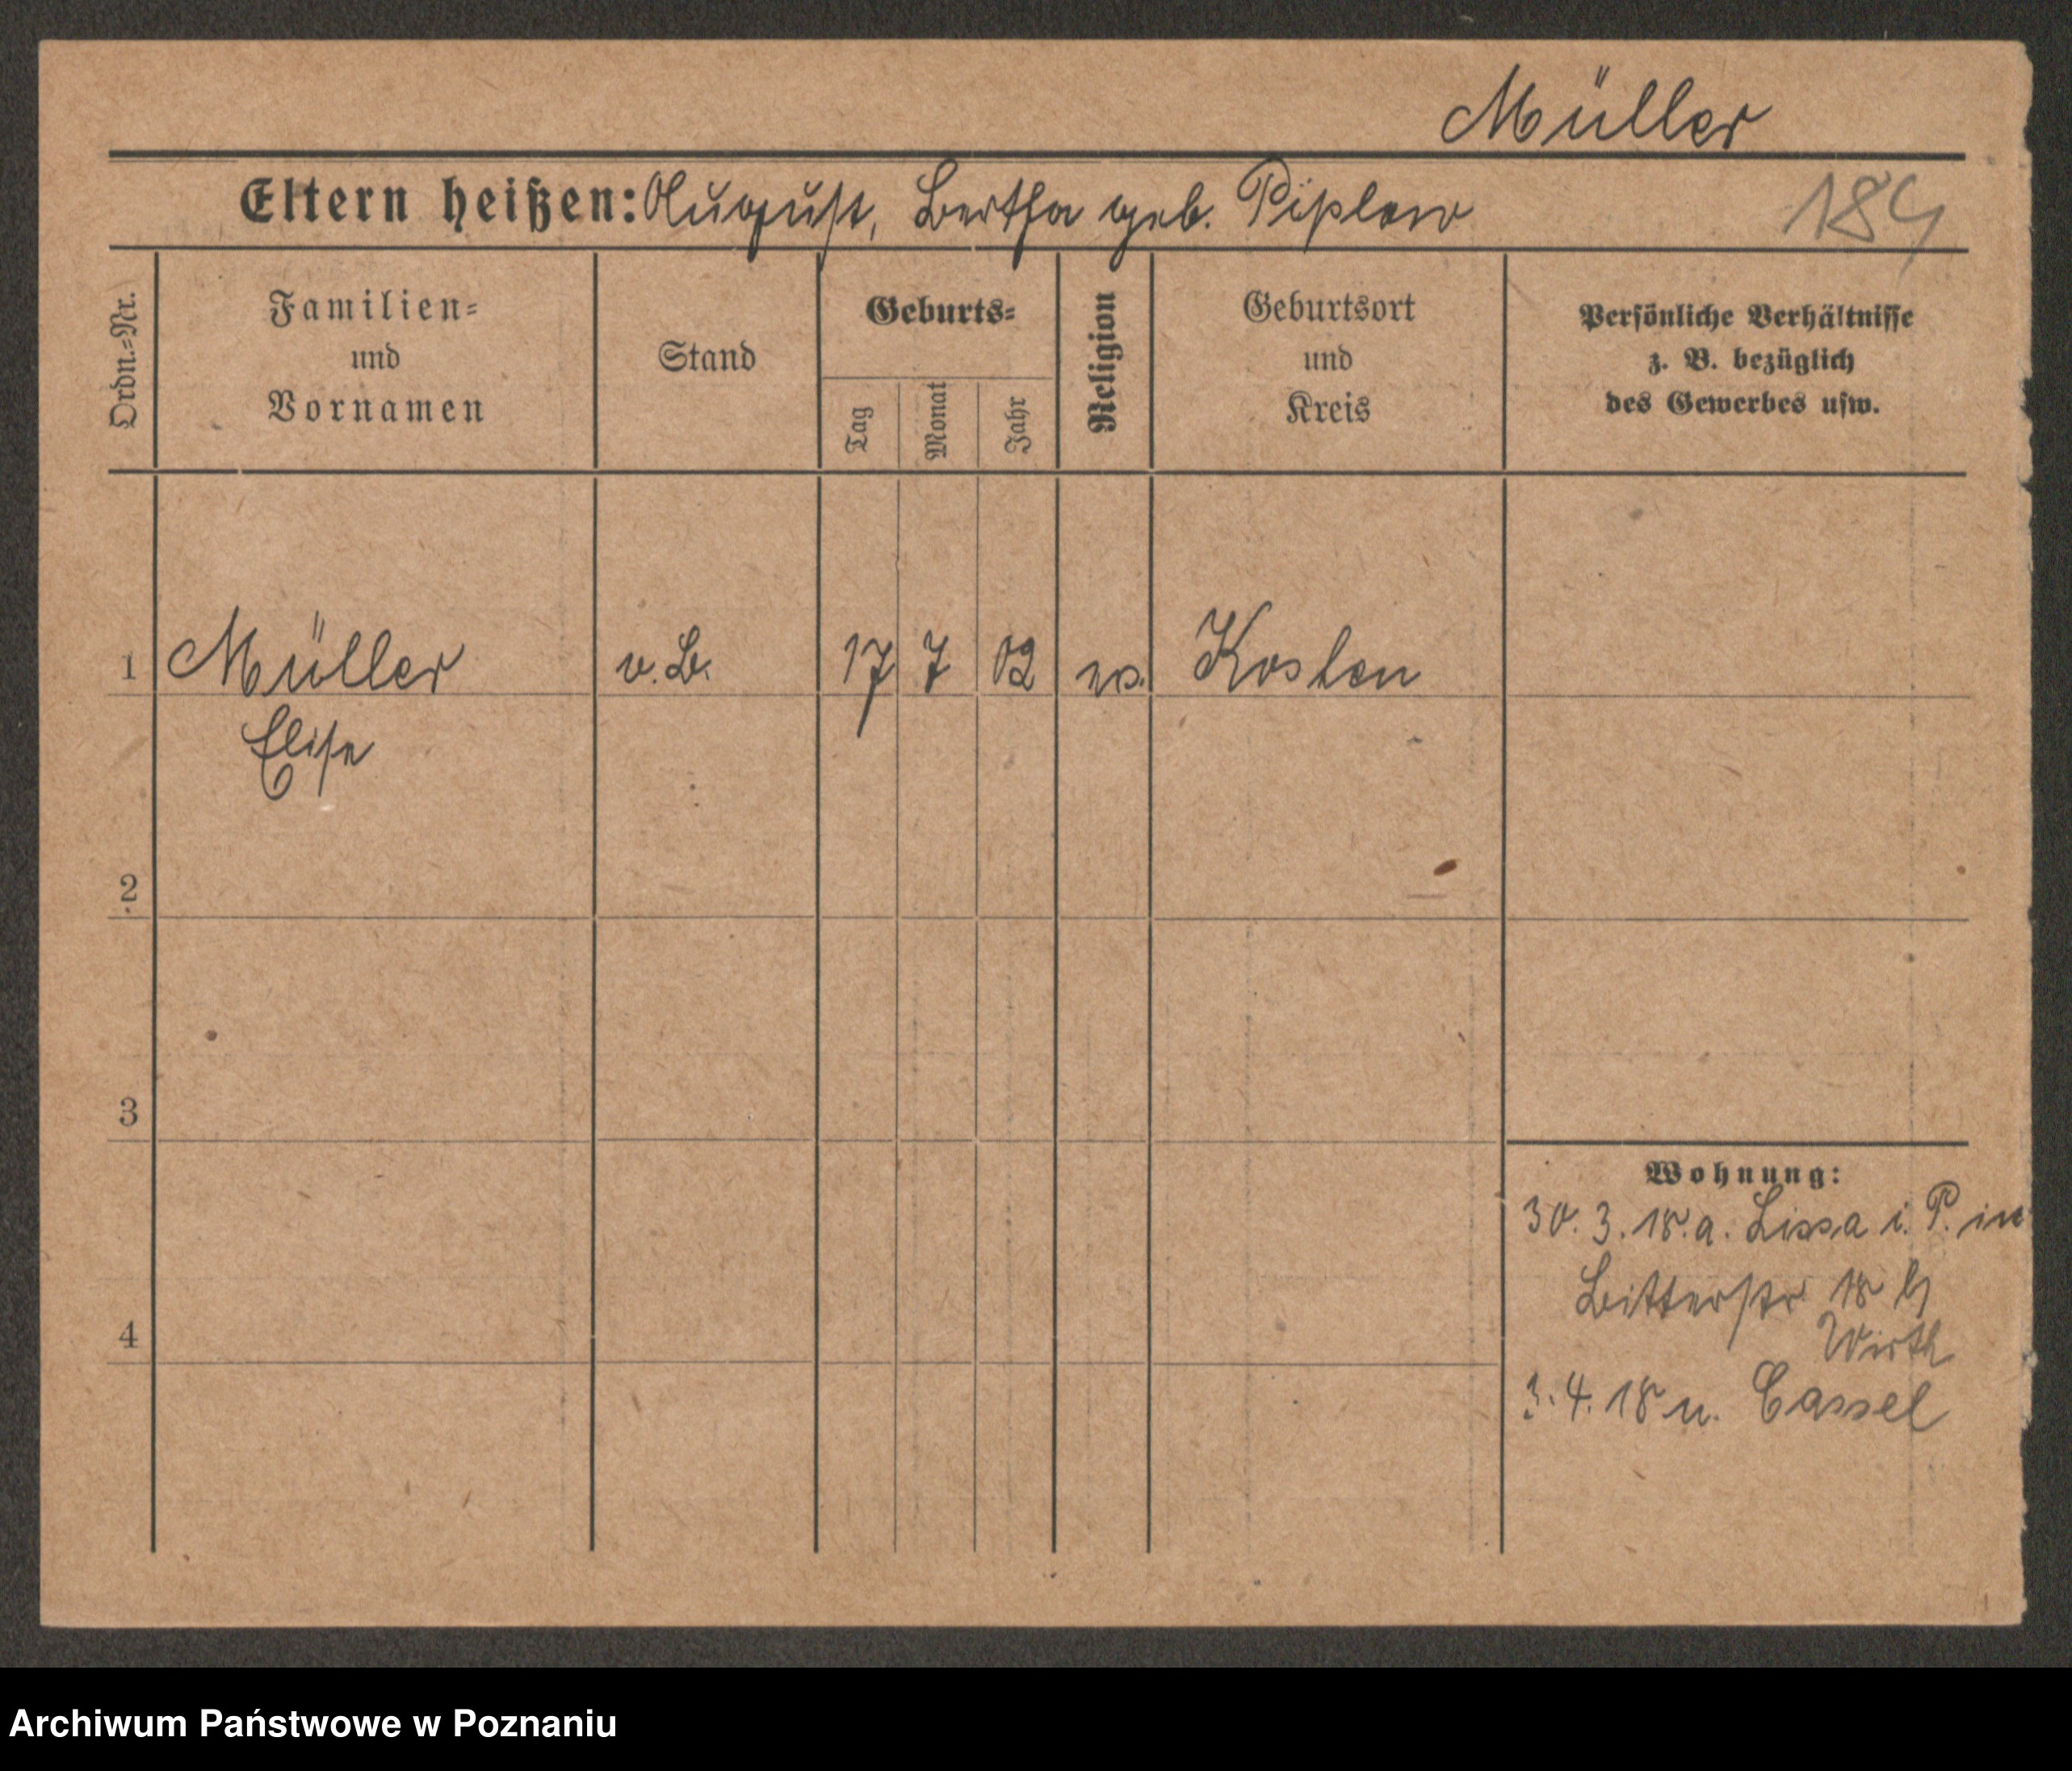 Müller
Eltern heißen: August, Bertha geb. Piplow
184
Ordn.=Nr.
Familien=
und
Vornamen
Stand
Geburts=
Tag
Monat
Jahr
Religion
Geburtsort
und
Kreis
Persönliche Verhältnisse
z. B. bezüglich
des Gewerbes usw.
1 Müller v. B. 17 7 02 Kosten
Elise
2
3
4
Wohnung:
30. 3. 18. a. Lissa i. P. in
Bitterstr 18
Wirth
3. 4. 18 n. Cassel
Archiwum Państwowe w Poznaniu